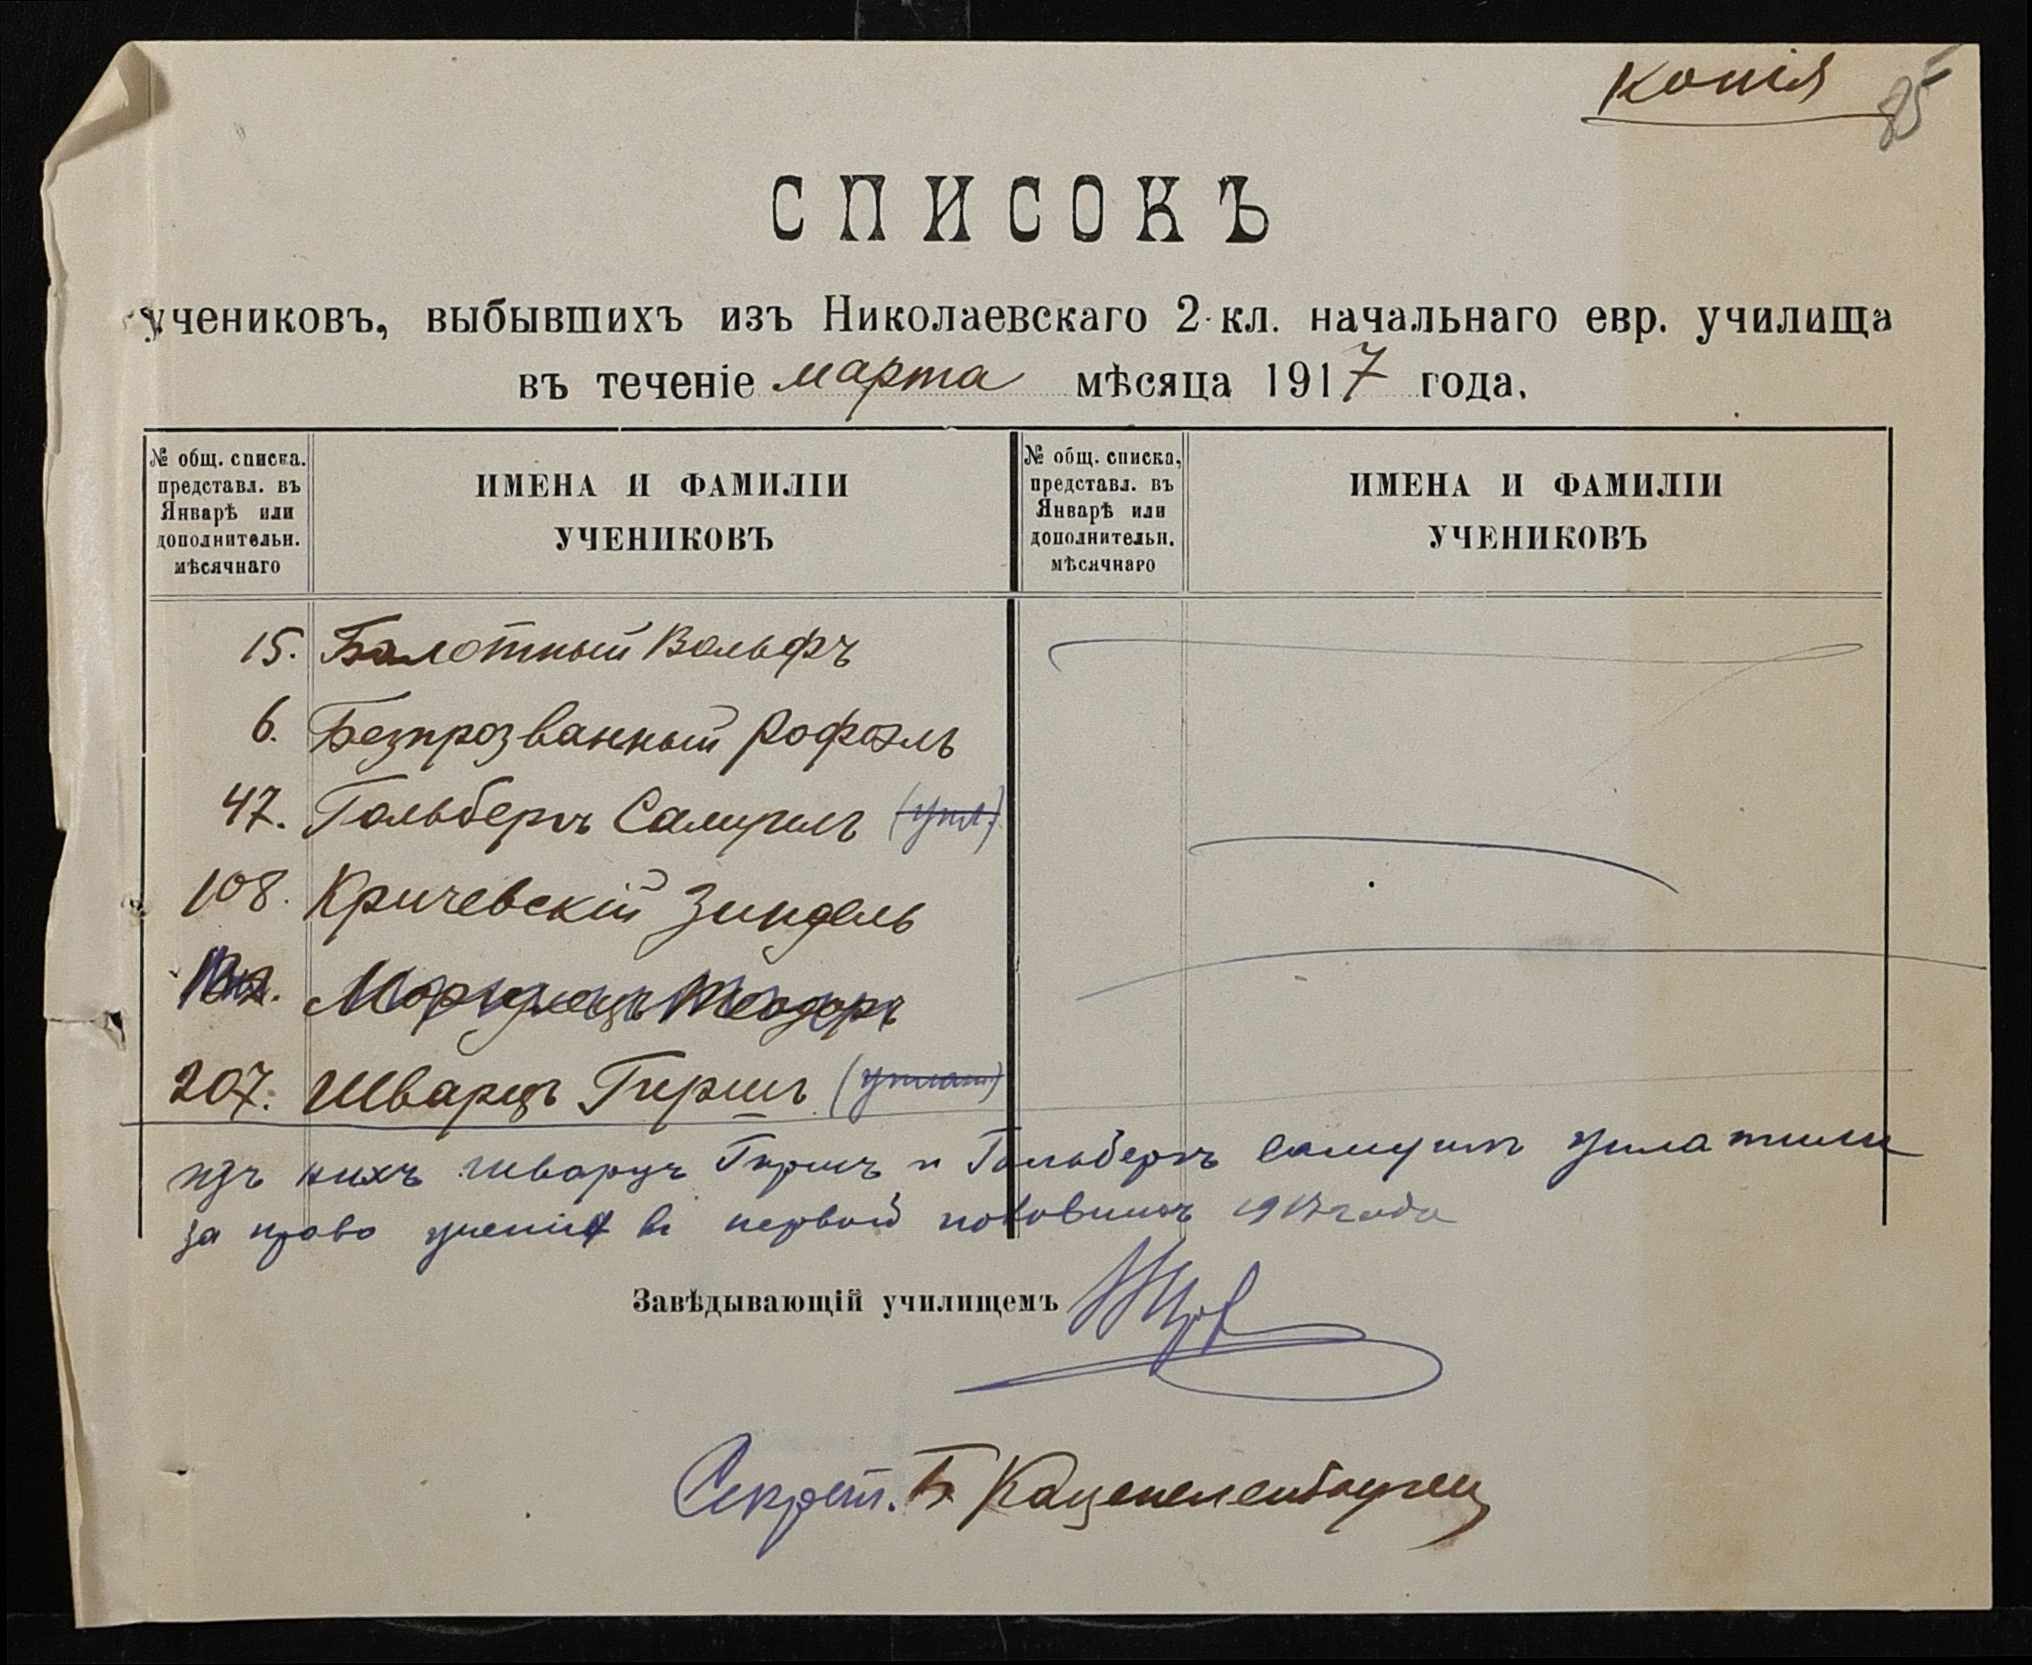 Копія
85
СПИСОКЪ
учениковъ, выбывшихъ изъ Николаевскаго 2-кл. начальнаго евр. училища
въ теченіе марта мѣсяца 1917 года.
№ общ. списка. представл. въ Январѣ или дополнительн. мѣсячнаго
ИМЕНА И ФАМИЛІИ УЧЕНИКОВЪ
№ общ. списка, представл. въ Январѣ или дополнительн. мѣсячнаго
ИМЕНА И ФАМИЛІИ УЧЕНИКОВЪ
15. Болотный Вольфъ
6. Безпрозванный Рофаэль
47. Гольбергъ Самуилъ (упл.)
108. Кричевскій Зиндель
Теодоръ
207. Шварцъ Гиршъ (уплат.)
изъ нихъ Шварцъ Гиршъ и Гольбергъ Самуилъ уплатили
за право ученія въ первой половинѣ 1917 года
Завѣдывающій училищемъ
Секрет. Б Каценеленбоуген